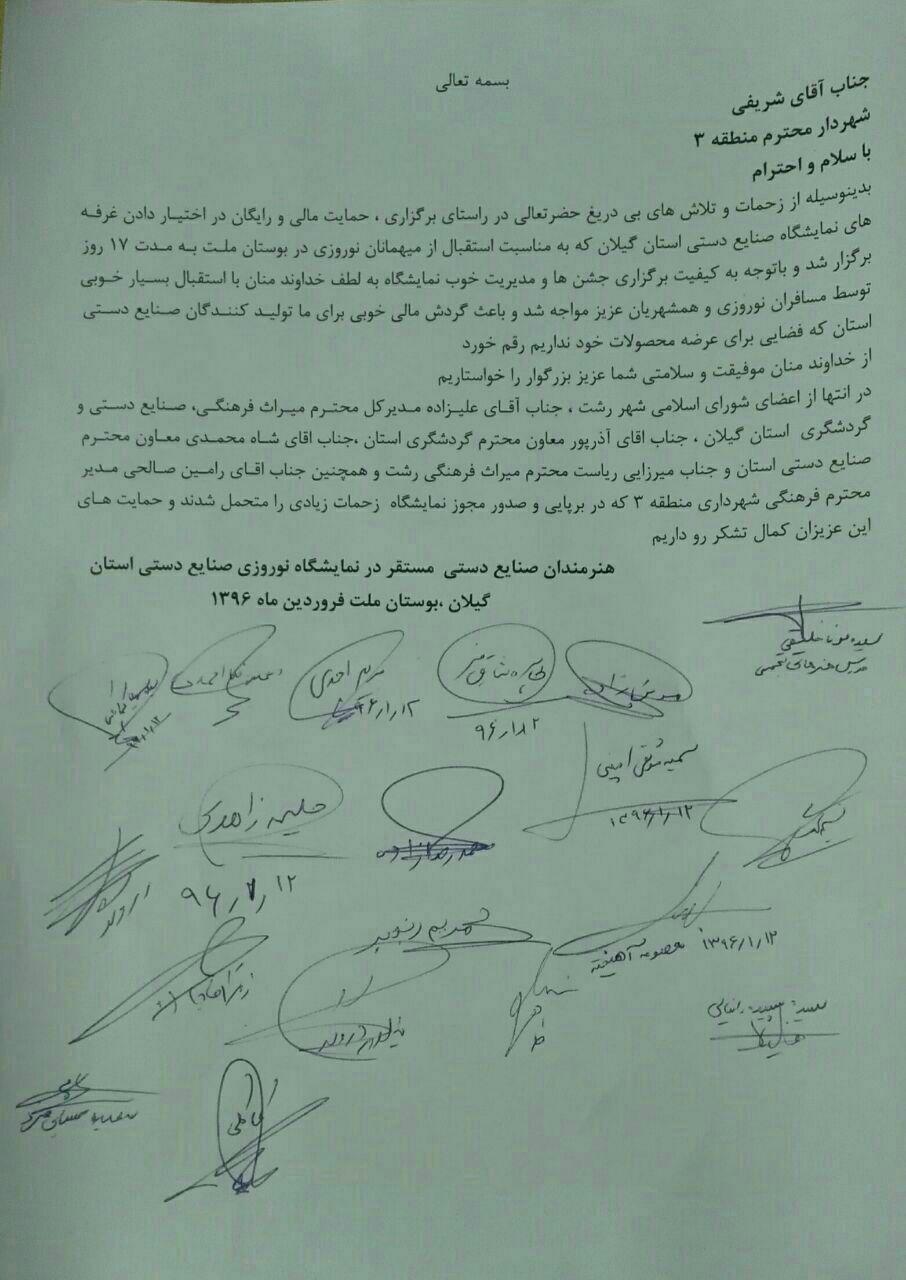 بسمه تعالی
جناب آقای شریفی
شهردار محترم منطقه ۳
با سلام و احترام
بدینوسیله از زحمات و تلاش های بی دریغ حضرتعالی در راستای برگزاری ، حمایت مالی و رایگان در اختیـار دادن غرفـه
های نمایشگاه صنایع دستی استان گیلان که به مناسبت استقبال از میهمانان نوروزی در بوستان ملـت بـه مـدت ۱۷ روز
برگزار شد و باتوجه به کیفیت برگزاری جشن ها و مدیریت خوب نمایشگاه به لطف خداوند منان با استقبال بسـیار خـوبی
توسط مسافران نوروزی و همشهریان عزیز مواجه شد و باعث گردش مالی خوبی برای ما تولیـد کننـدگان صـنایع دسـتی
استان که فضایی برای عرضه محصولات خود نداریم رقم خورد
از خداوند منان موفیقت و سلامتی شما عزیز بزرگوار را خواستاریم
در انتها از اعضای شورای اسلامی شهر رشت ، جناب آقـای علیـزاده مـدیرکل محتـرم میـراث فرهنگـی، صنایع دستی و
گردشگری استان گیلان ، جناب اقای آذرپور معاون محترم گردشگری استان ،جناب اقای شـاه محمـدی معـاون محتـرم
صنایع دستی استان و جناب میرزایی ریاست محترم میراث فرهنگی رشت و همچنین جناب اقـای رامـین صـالحی مـدیر
محترم فرهنگی شهرداری منطقه ۳ که در برپایی و صدور مجوز نمایشگاه زحمات زیادی را متحمل شدند و حمایت هـای
این عزیزان کمال تشکر رو داریم
هنرمندان صنایع دستی مستقر در نمایشگاه نوروزی صنایع دستی استان
گیلان ،بوستان ملت فروردین ماه ۱۳۹۶
مریم احمدی
۹۶/۱/۱۲
۹۶/۱/۱۲
سمیه
۱۳۹۶/۱/۱۲
حلیمه زاهدی
۹۶/۱/۱۲
معصومه
۱۳۹۶/۱/۱۲